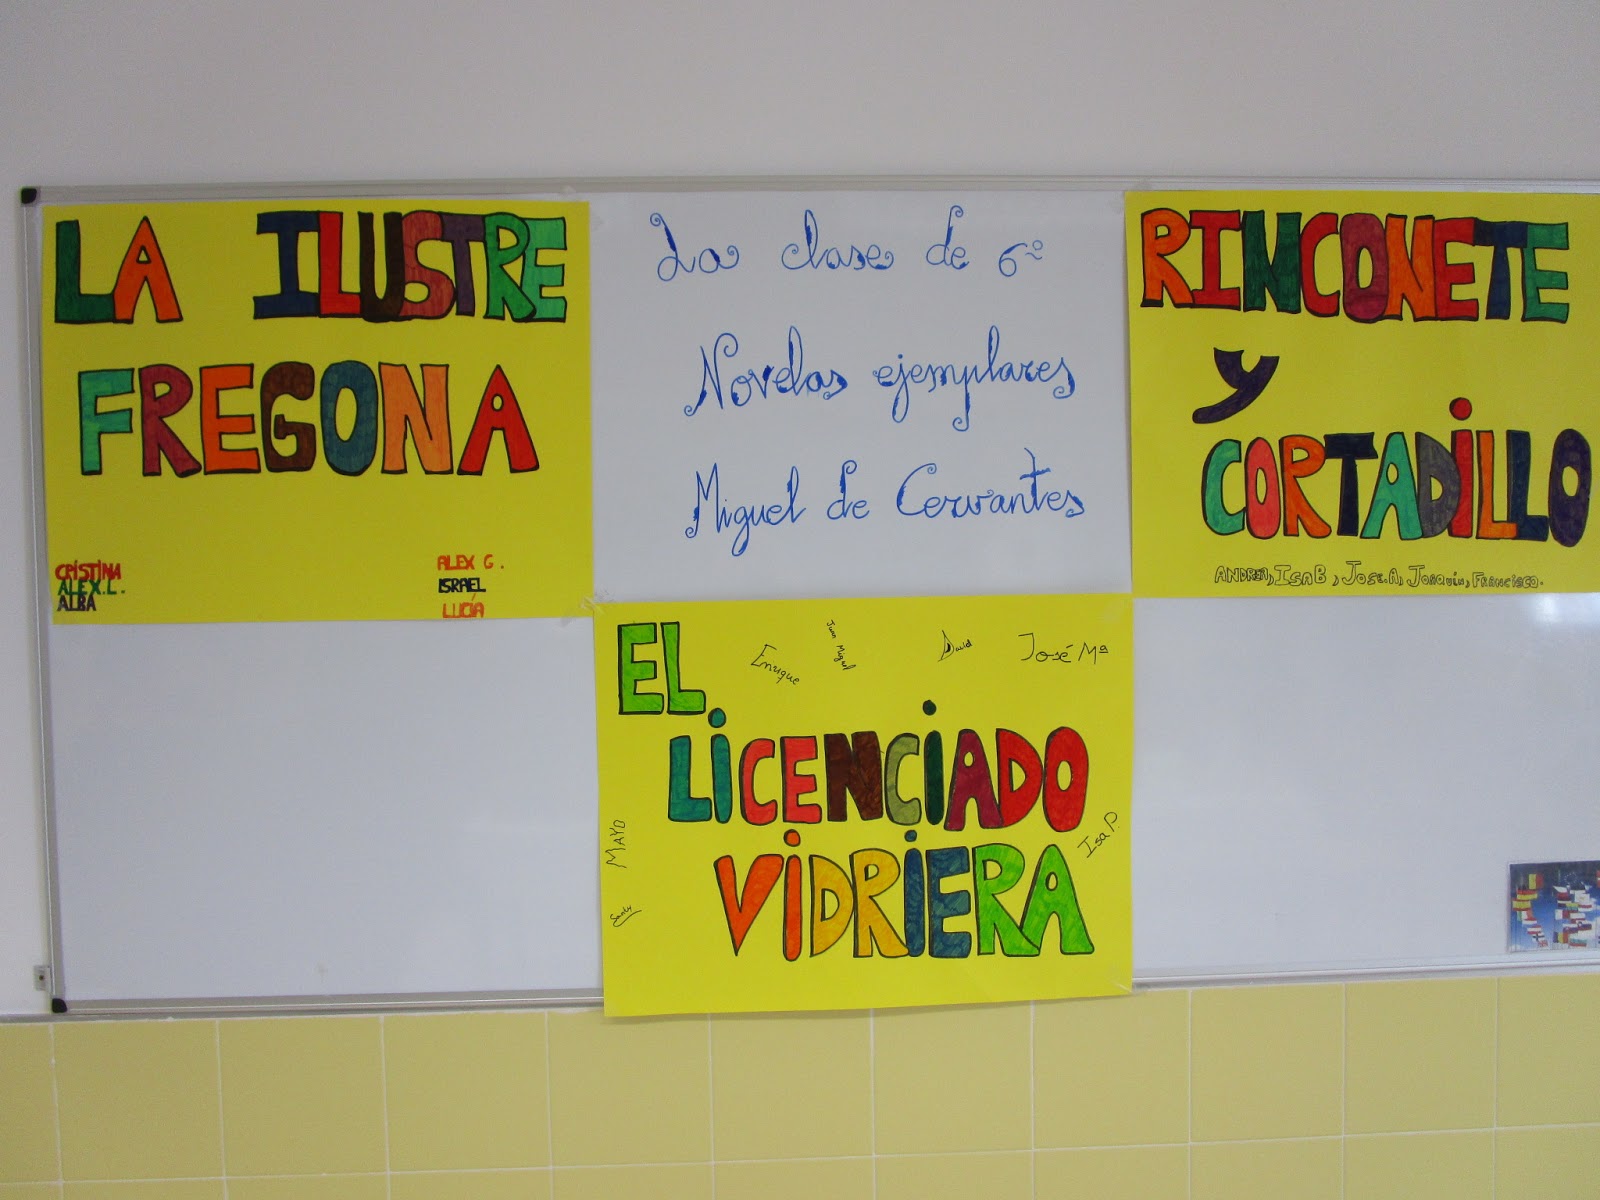 LA ILUSTRE
FREGONA
CRISTINA
ALEX.L.
ALBA
ALEX G.
ISRAEL
LUCÍA
La clase de 6º
Novelas ejemplares
Miguel de Cervantes
RINCONETE
Y
CORTADILLO
ANDREA, ISA B, JOSE.A, JOAQUÍN, FRANCISCO.
EL
Enrique
Juan Miguel
David
José Mª
LICENCIADO
VIDRIERA
MAYO
Isa P.